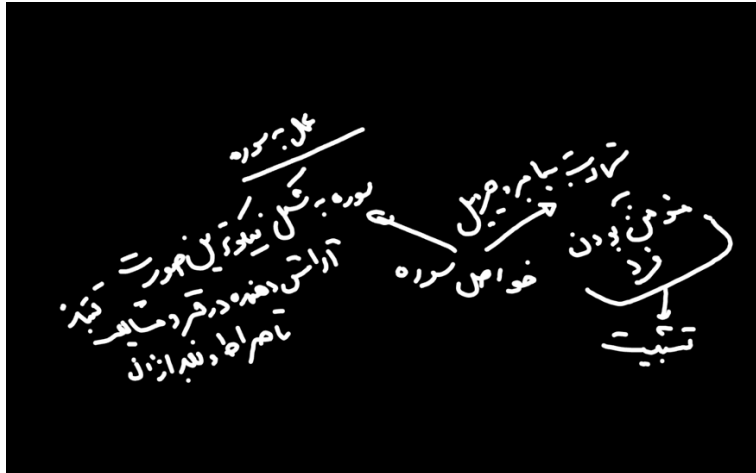 عمل به سوره
سوره به شکل نیکوترین صورت
آرامش دهنده در قبر و
تا صراط و
خواص سوره
شهادت پیامبر و جبرئیل
مومن بودن
فرد
تثبیت